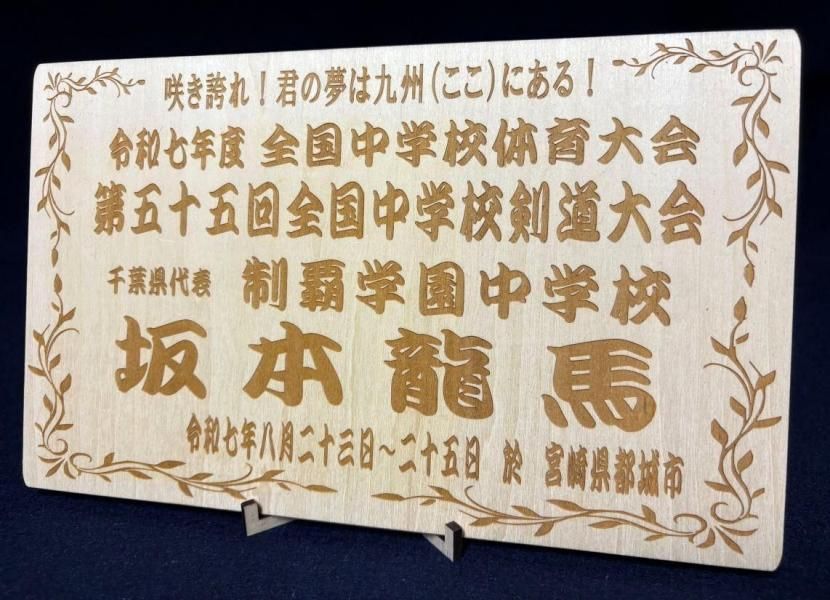 咲き誇れ！君の夢は九州(ここ)にある！
令和七年度 全国中学校体育大会
第五十五回全国中学校剣道大会
千葉県代表 制覇学園中学校
坂本龍馬
令和七年八月二十三日～二十五日 於 宮崎県都城市